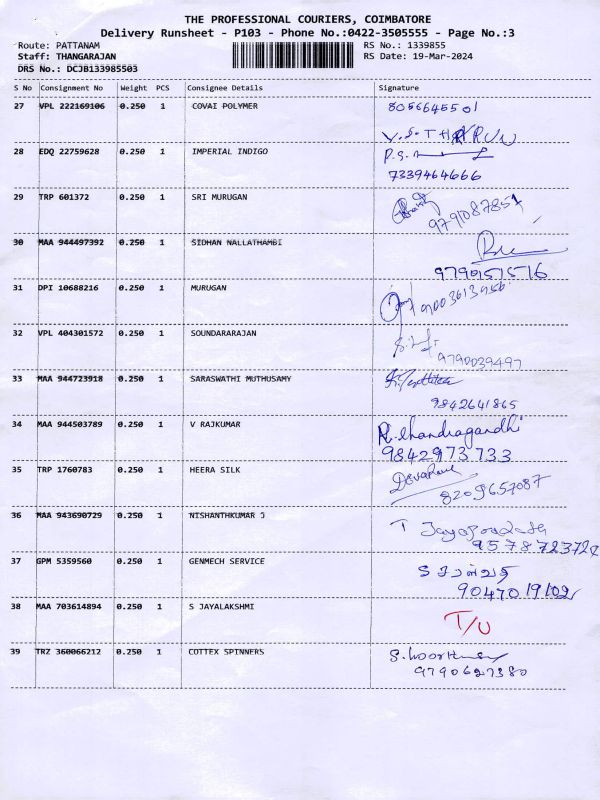 THE PROFESSIONAL COURIERS, COIMBATORE
Delivery Runsheet - P103 - Phone No.:0422-3505555 - Page No.:3
Route: PATTANAM
RS No.: 1339855
Staff: THANGARAJAN
RS Date: 19-Mar-2024
DRS No.: DCJB133985503
S No Consignment No Weight PCS Consignee Details Signature
27 VPL 222169106 0.250 1 COVAI POLYMER 8056645501
28 EDQ 22759628 0.250 1 IMPERIAL INDIGO
7339464666
29 TRP 601372 0.250 1 SRI MURUGAN
9791087851
30 MAA 944497392 0.250 1 SIDHAN NALLATHAMBI
9790151516
31 DPI 10688216 0.250 1 MURUGAN
32 VPL 404301572 0.250 1 SOUNDARARAJAN
9790039497
33 MAA 944723918 0.250 1 SARASWATHI MUTHUSAMY
9842641865
34 MAA 944503789 0.250 1 V RAJKUMAR R. Chandragandhi
9842973733
35 TRP 1760783 0.250 1 HEERA SILK
8209657087
36 MAA 943690729 0.250 1 NISHANTHKUMAR J
9578723724
37 GPM 5359560 0.250 1 GENMECH SERVICE
38 MAA 703614894 0.250 1 S JAYALAKSHMI T/U
39 TRZ 360066212 0.250 1 COTTEX SPINNERS
9790627380